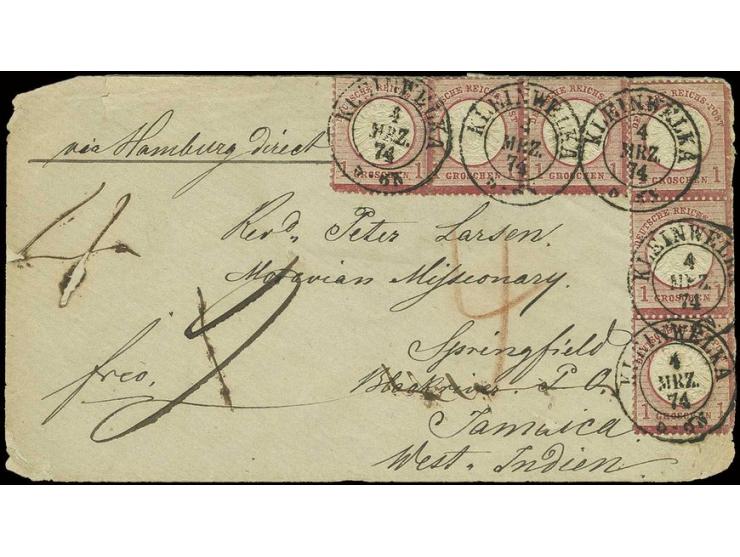 via Hamburg direct
DEUTSCHE REICHS-POST
1 GROSCHEN 1
KLEINWELKA
4
MRZ.
74
KLEINWELKA
4
MRZ.
74
KLEINWELKA
4
MRZ.
74
4
Revd. Peter Larsen.
Moravian Missionary.
4
KLEINWELKA
4
MRZ.
74
1 GROSCHEN 1
Springfield
frco.
P. O.
KLEINWELKA
4
MRZ.
74
1 GROSCHEN 1
Jamaica.
West-Indien.